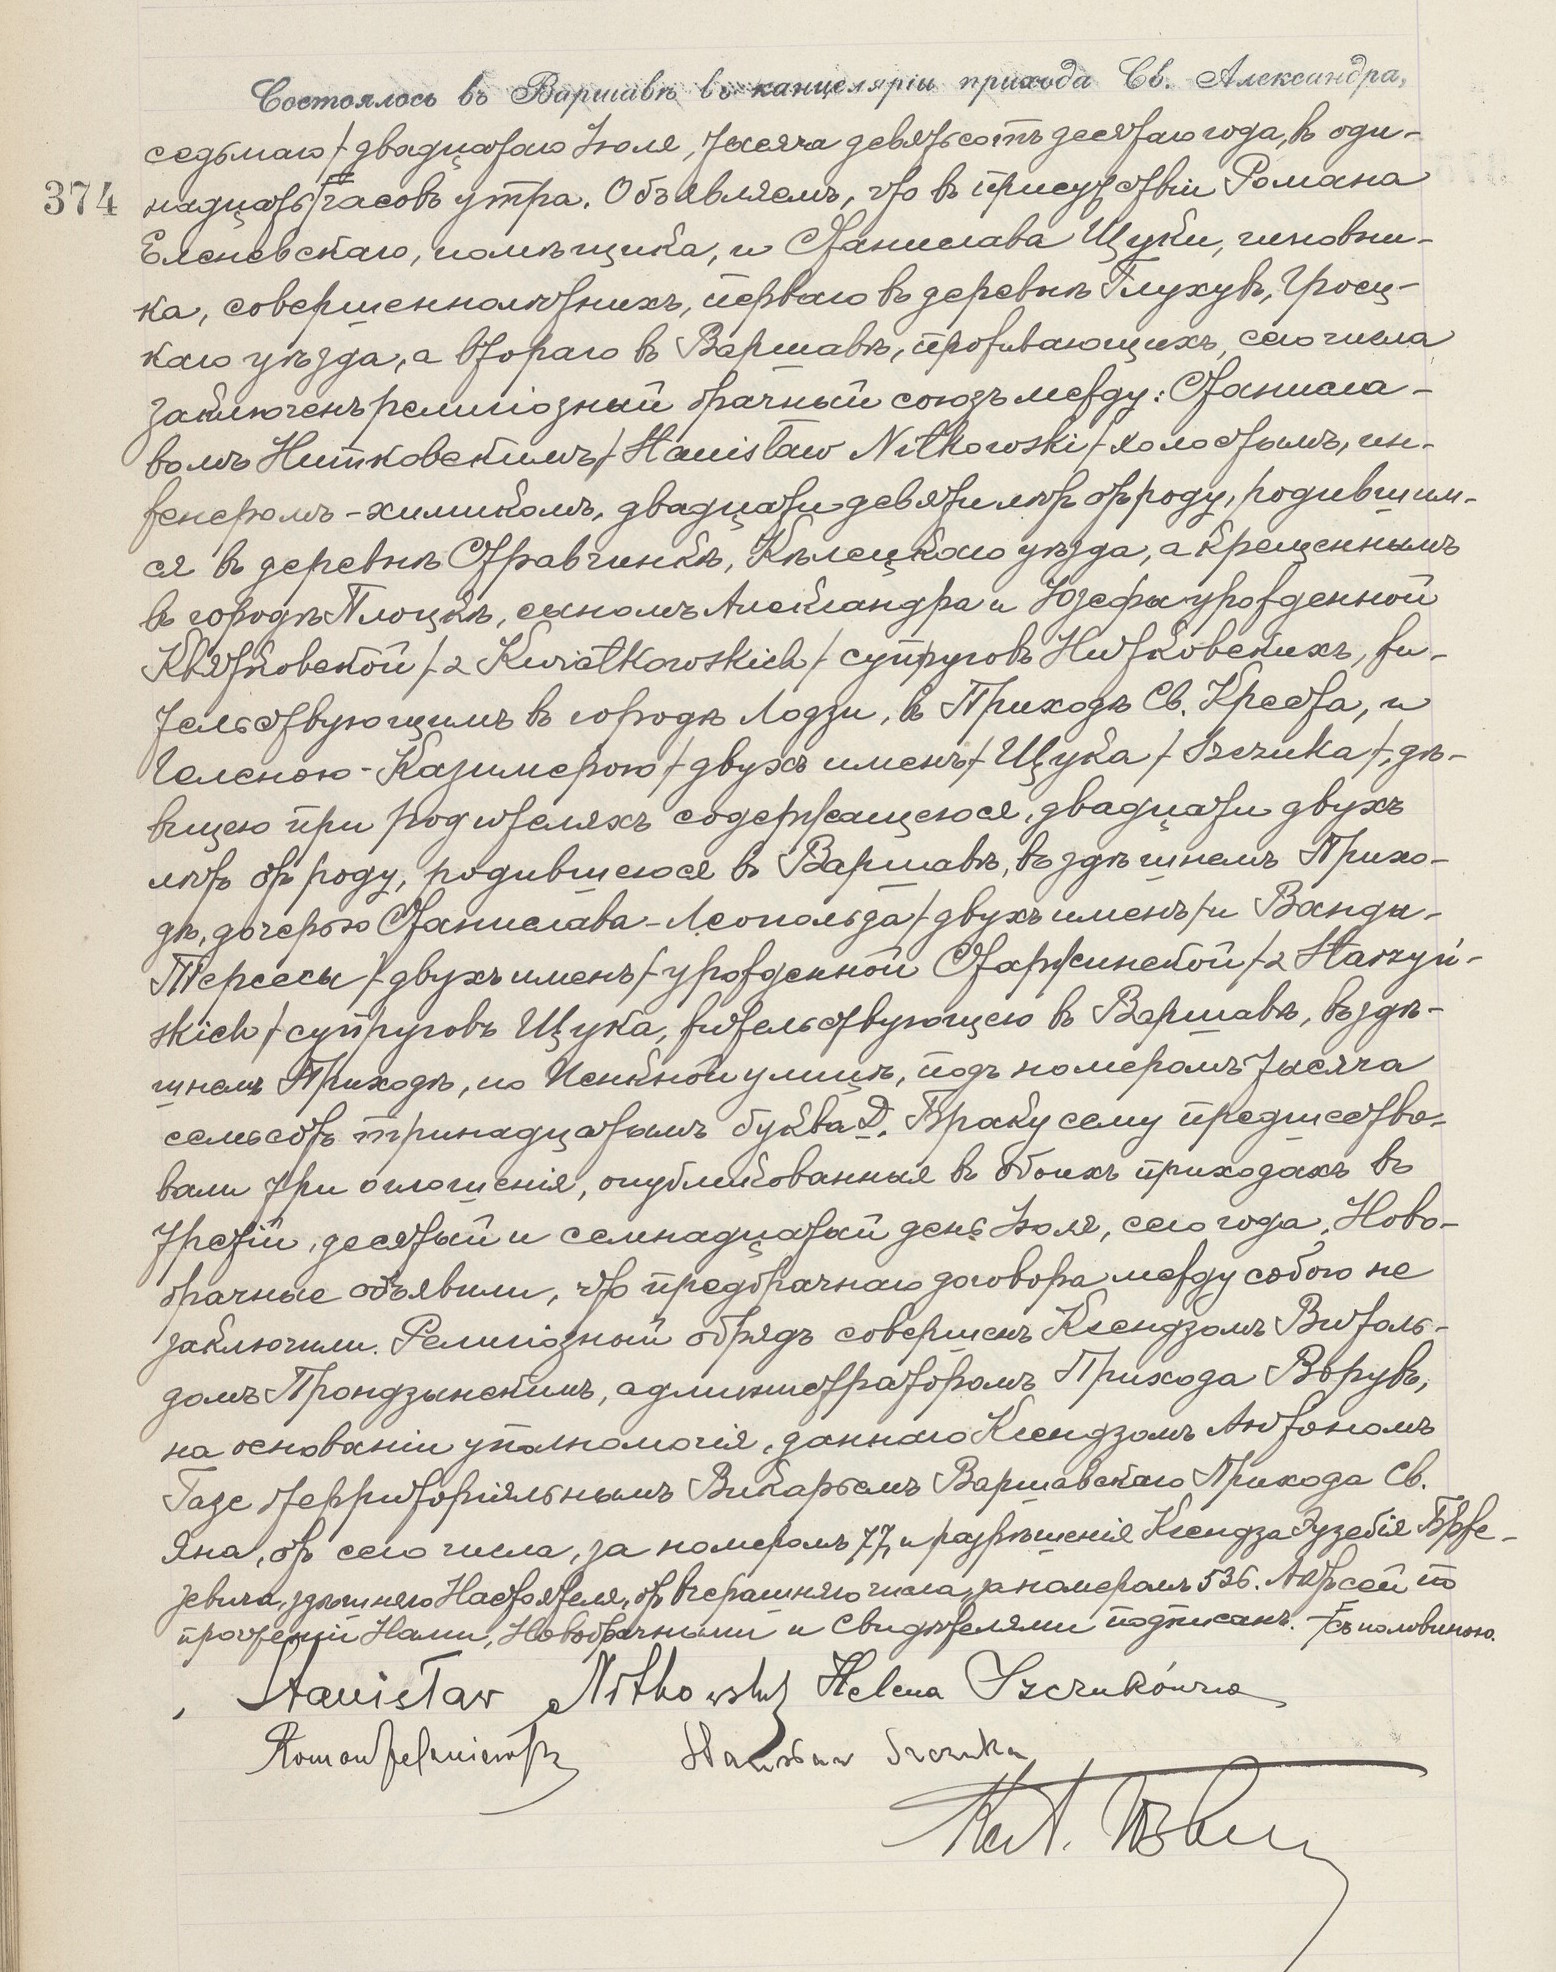 Состоялось въ Варшавѣ въ канцеляріи прихода Св. Александра,
седьмаго / двадцатаго Іюля, тысяча девятьсотъ десятаго года, въ оди-
374 надцать часовъ утра. Объявляемъ, что въ присутствіи Романа
Еленевскаго, помѣщика, и Станислава Щуки, чиновни-
ка, совершеннолѣтнихъ, перваго въ деревнѣ Глухувъ, Гроец-
каго уѣзда, а втораго въ Варшавѣ, проживающихъ, сего числа
заключенъ религіозный брачный союзъ между: Станисла-
вомъ Нитковскимъ / Stanisław Nitkowski / холостымъ, ин-
женеромъ-химикомъ, двадцати девяти лѣтъ отъ роду, родившим-
ся въ деревнѣ Стравчинкѣ, Кѣлецкаго уѣзда, а крещеннымъ
въ городѣ Плоцкѣ, сыномъ Александра и Юзефы урожденной
Квятковской / z Kwiatkowskich / супруговъ Нитковскихъ, жи-
тельствующимъ въ городѣ Лодзи, въ Приходѣ Св. Креста, и
Геленою-Казимерою / двухъ именъ / Щука / Szczuka /, дѣ-
вицею при родителяхъ содержащеюся, двадцати двухъ
лѣтъ отъ роду, родившеюся въ Варшавѣ, въ здѣшнемъ Прихо-
дѣ, дочерью Станислава-Леопольда / двухъ именъ / и Ванды-
Тересы / двухъ именъ / урожденной Старжинской / z Starzyń-
skich / супруговъ Щука, жительствующею въ Варшавѣ, въ здѣ-
шнемъ Приходѣ, по Пенкной улицѣ, подъ номеромъ тысяча
семьсотъ тринадцатымъ буква D. Браку сему предшество-
вали три оглошенія, опубликованныя въ обоихъ приходахъ въ
третій, десятый и семнадцатый день Іюля, сего года. Ново-
брачные объявили, что предбрачнаго договора между собою не
заключили. Религіозный обрядъ совершенъ Ксендзомъ Витоль-
домъ Прондзынскимъ, администраторомъ Прихода Ворувъ,
на основаніи уполномочія, даннаго Ксендзомъ Антономъ
Газе территоріяльнымъ Викарьемъ Варшавскаго Прихода Св.
Яна, отъ сего числа, за номеромъ 77, и разрѣшенія Ксендза Эузебія Брже-
зевича, здѣшняго Настоятеля, отъ вчерашняго числа, за номеромъ 536. Актъ сей по
прочтеніи Нами, Новобрачными и Свидѣтелями подписанъ. съ половиною.
Stanisław Nitkowski Helena Szczukówna
Roman Jeleniewski Stanisław Szczuka